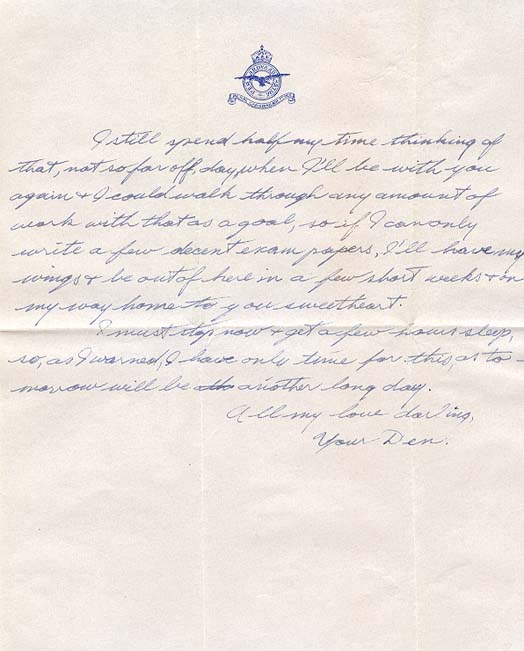 PER ARDUA AD ASTRA
ROYAL CANADIAN AIR FORCE
I still spend half my time thinking of
that, not so far off, day, when I'll be with you
again & I could walk through any amount of
work with that as a goal, so if I can only
write a few decent exam papers, I'll have my
wings & be out of here in a few short weeks & on
my way home to you sweetheart.
I must stop now & get a few hours sleep,
so, as I warned, I have only time for this, as to-
morrow will be another long day.
All my love darling,
Your Den.